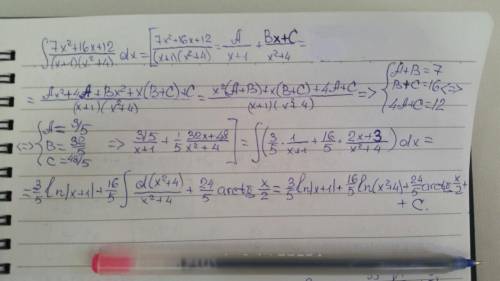 ∫ (7x²+16x+12)/((x+1)(x²+4)) dx = [ (7x²+16x+12)/((x+1)(x²+4)) = A/(x+1) + (Bx+C)/(x²+4) =
= (Ax²+4A+Bx²+x(B+C)+C)/((x+1)(x²+4)) = (x²(A+B)+x(B+C)+4A+C)/((x+1)(x²+4)) => { A+B=7 B+C=16 4A+C=12 <=>
<=> { A=3/5 B=32/5 C=48/5 => (3/5)/(x+1) + 1/5 (32x+48)/(x²+4) ] = ∫ (3/5 · 1/(x+1) + 16/5 · (2x+3)/(x²+4)) dx =
= 3/5 ln|x+1| + 16/5 ∫ d(x²+4)/(x²+4) + 24/5 arctg x/2 = 3/5 ln|x+1| + 16/5 ln(x²+4) + 24/5 arctg x/2 +
+ C.